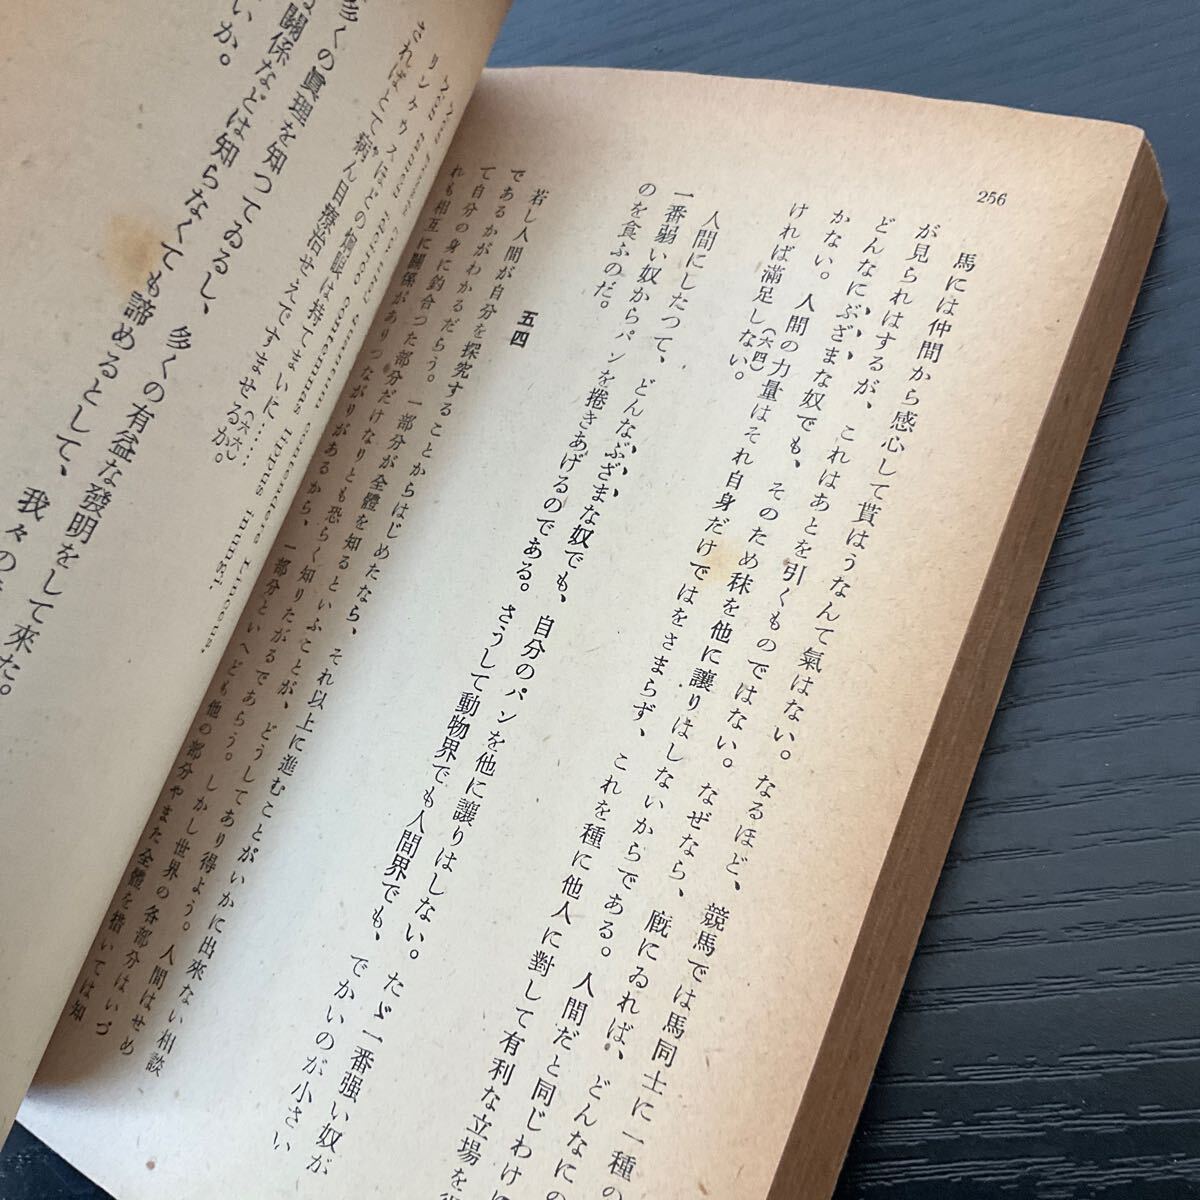 256
馬には仲間から感心して貰はうなんて氣はない。なるほど、競馬では馬同士に一種の
が見られはするが、これはあとを引くものではない。なぜなら、廐にゐれば、どんなにの
どんなにぶざまな奴でも、そのため秣を他に讓りはしないからである。人間だと同じわけに
かない。人間の力量はそれ自身だけではをさまらず、これを種に他人に對して有利な立場を
ければ滿足しない。
(六四)
人間にしたつて、どんなぶざまな奴でも、自分のパンを他に讓りはしない。たゞ一番强い奴が
一番弱い奴からパンを捲きあげるのである。さうして動物界でも人間界でも、でかいのが小さい
のを食ふのだ。
五四
若し人間が自分を探究することからはじめたなら、それ以上に進むことがいかに出來ない相談
であるかがわかるだらう。一部分が全體を知るといふことが、どうしてあり得よう。人間はせめ
て自分の身に釣合つた部分だけなりとも恐らく知りたがるであらう。しかし世界の各部分はいづ
れも相互に關係がありつながりがあるから、一部分といへども他の部分やまた全體を措いては知
contemnas lippus inungi.
リンケウスほどの烱眼は持てまいに……
さればとて病ん目療治せえですませるか。
(六六)
多くの眞理を知つてゐるし、多くの有益な發明をして來た。
關係などは知らなくても諦めるとして、我々の
いか。